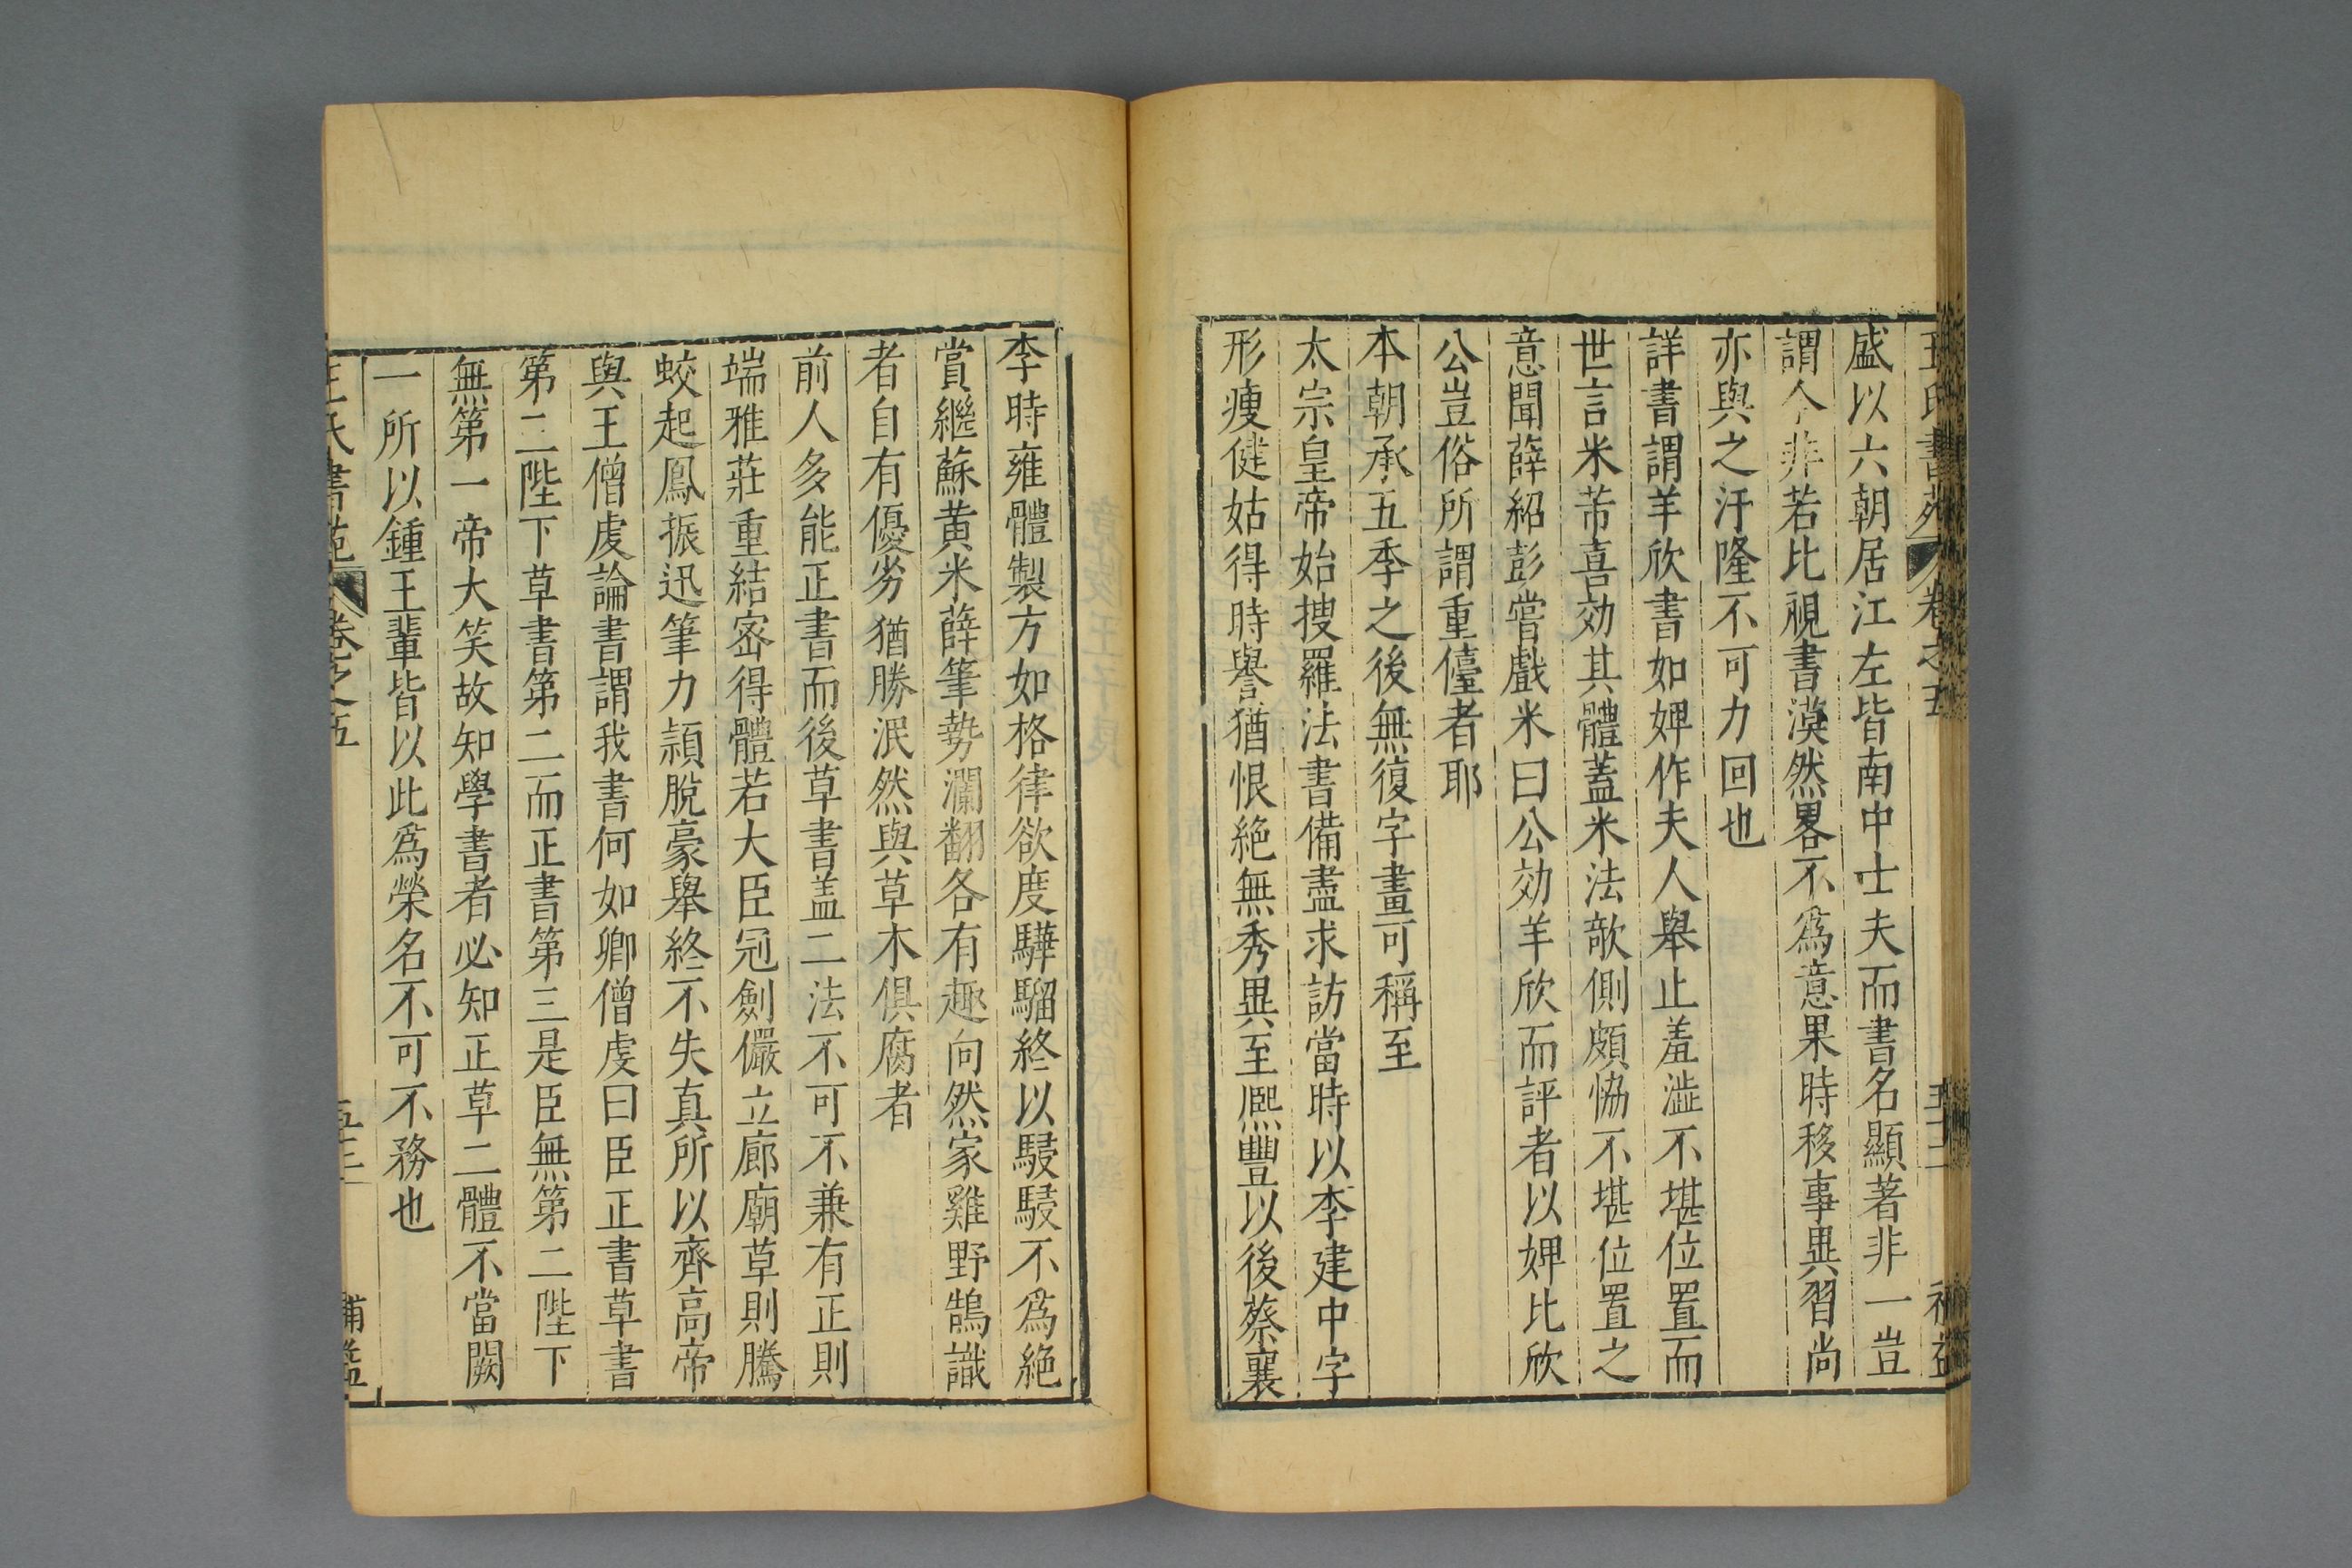 王氏書苑 卷之五
盛以六朝居江左皆南中士夫而書名顯著非一豈
謂今非若比視書漠然畧不爲意果時移事異習尚
亦與之汙隆不可力回也
詳書謂羊欣書如婢作夫人舉止羞澁不堪位置而
世言米芾喜効其體蓋米法欹側頗恊不堪位置之
意聞薛紹彭嘗戲米曰公効羊欣而評者以婢比欣
公豈俗所謂重儓者耶
本朝承五季之後無復字畫可稱至
太宗皇帝始搜羅法書備盡求訪當時以李建中字
形瘦健姑得時譽猶恨絶無秀異至熈豐以後蔡襄
李時雍體製方如格律欲度驊騮終以駸駸不爲絶
賞繼蘇黄米薛筆勢瀾翻各有趣向然家雞野鵠識
者自有優劣猶勝泯然與草木俱腐者
前人多能正書而後草書盖二法不可不兼有正則
端雅莊重結宻得體若大臣冠劍儼立廊廟草則騰
蛟起鳳振迅筆力頴脫豪舉終不失真所以齊高帝
與王僧虔論書謂我書何如卿僧虔曰臣正書草書
第二陛下草書第二而正書第三是臣無第二陛下
無第一帝大笑故知學書者必知正草二體不當闕
一所以鍾王輩皆以此爲榮名不可不務也
王氏書苑 卷之五